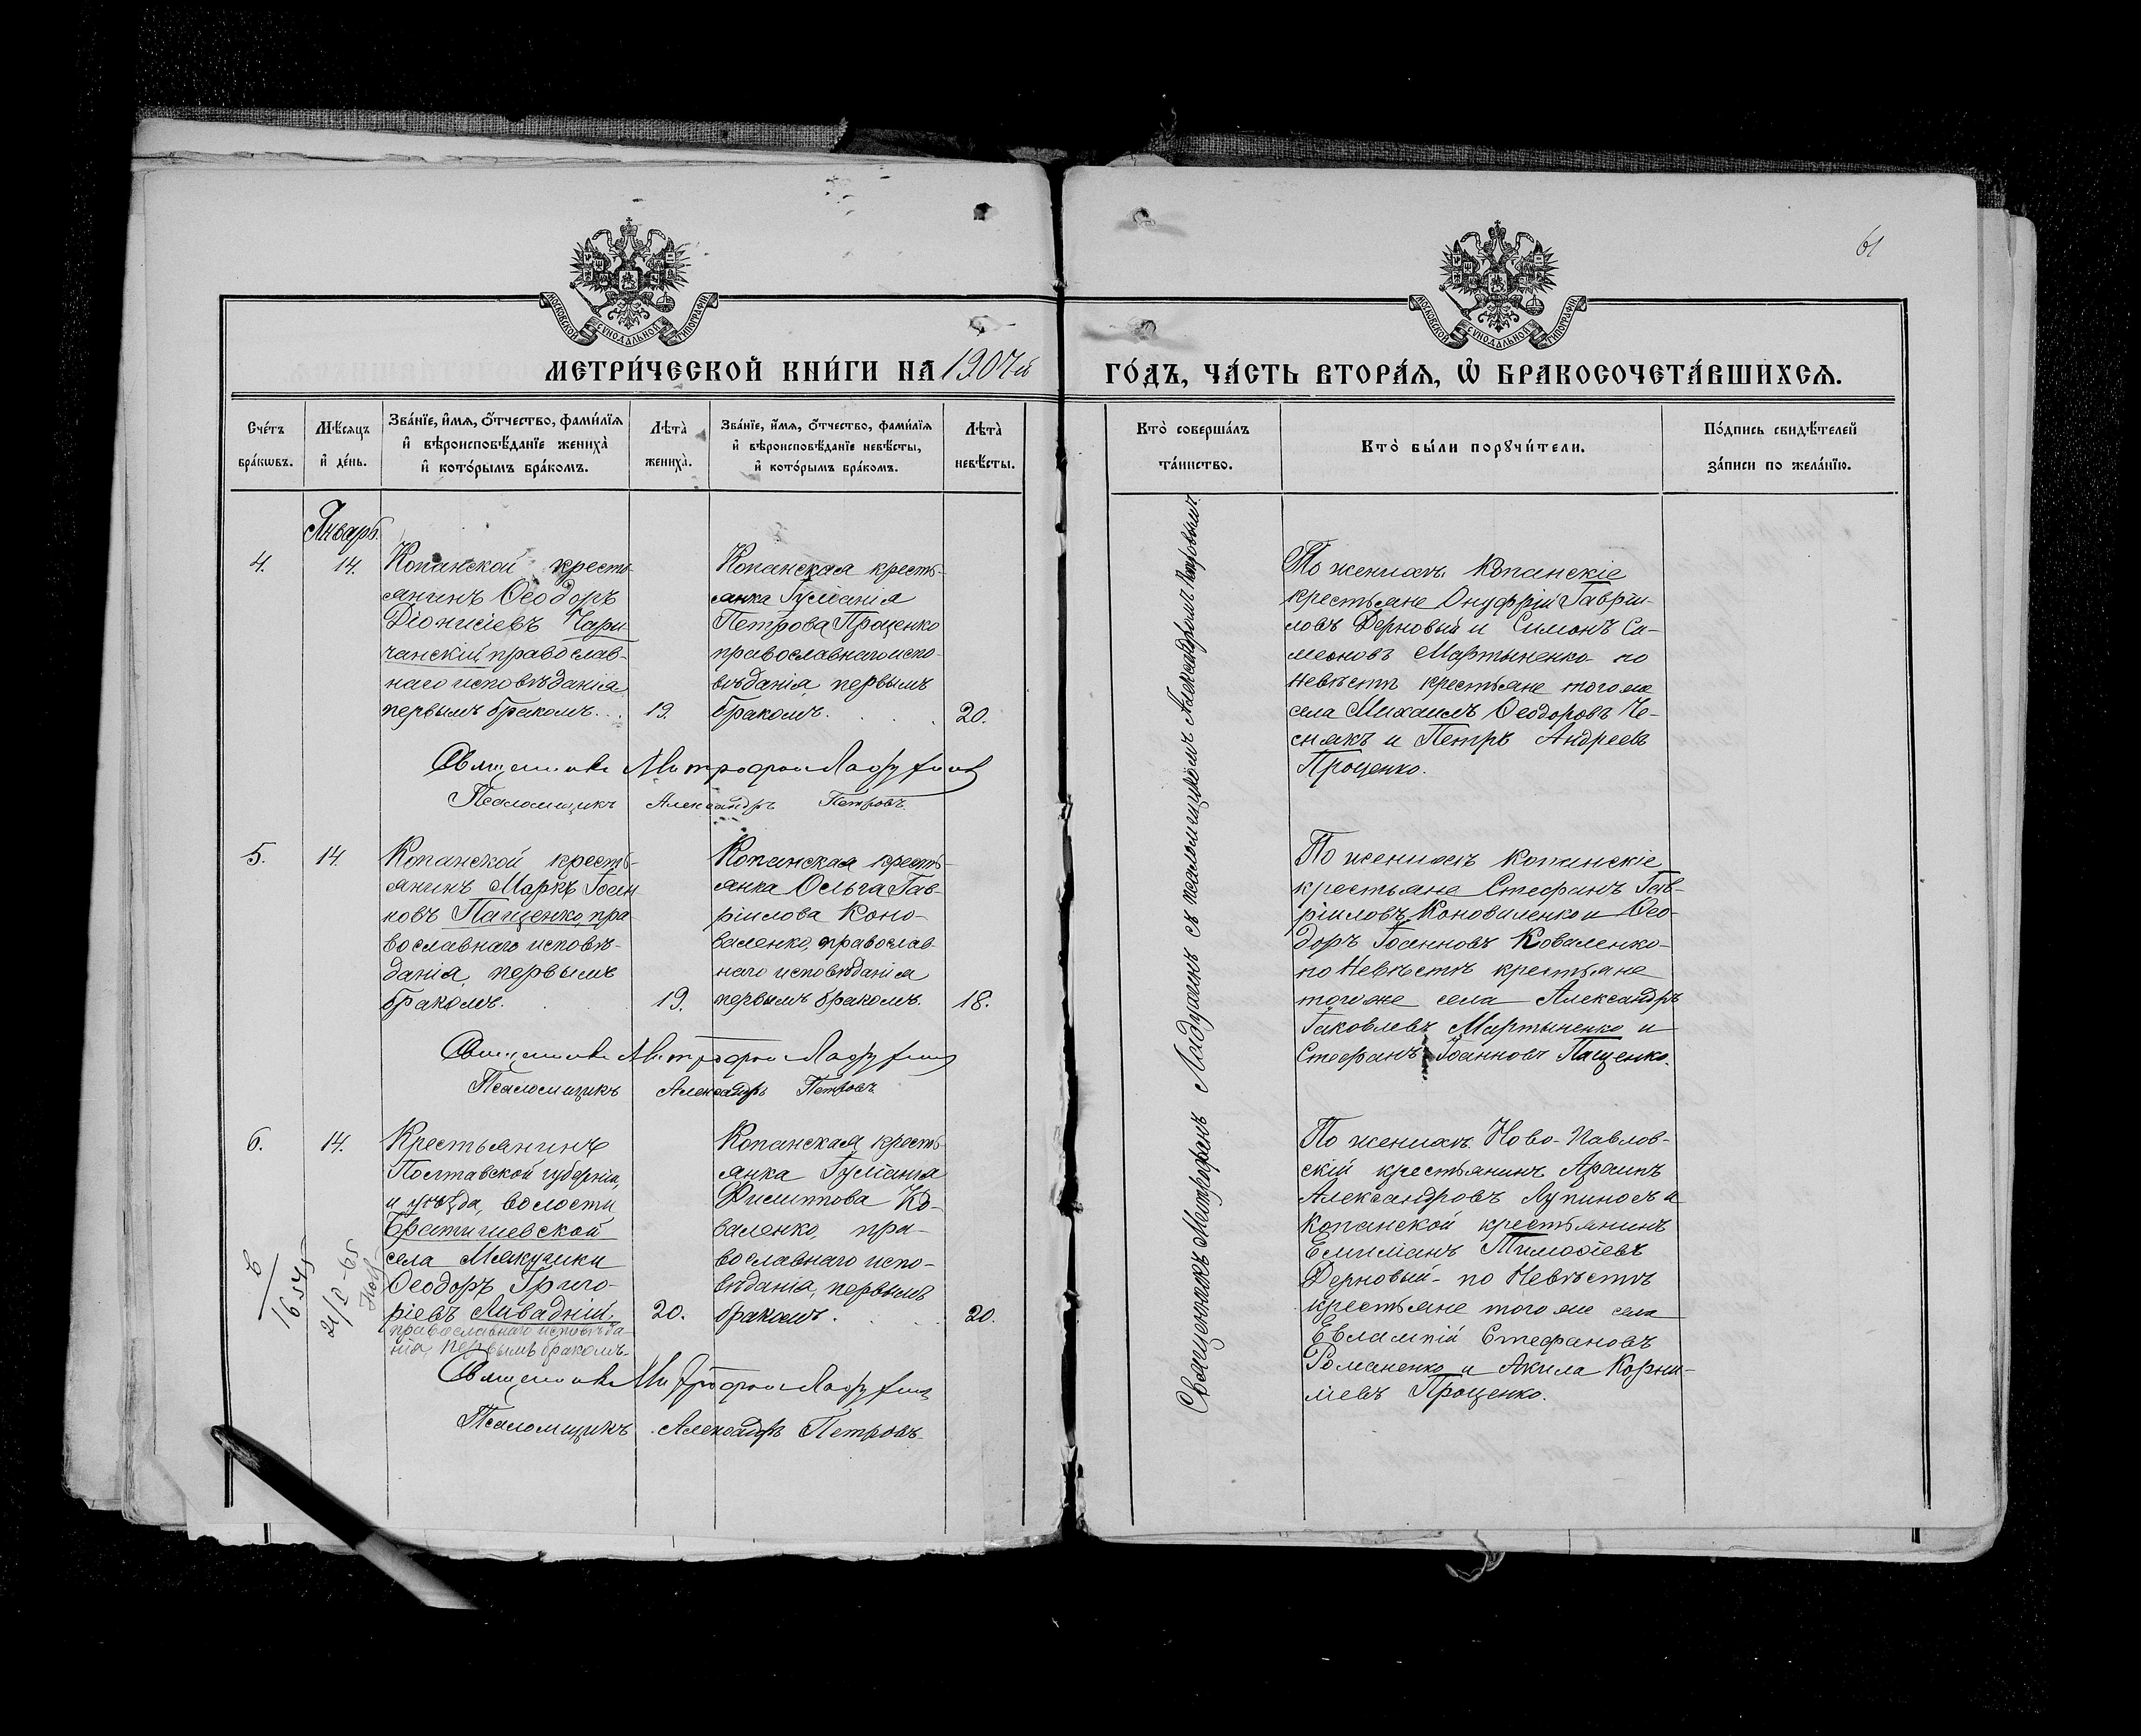 61
МОСКОВСКОЙ СУНОДАЛЬНОЙ ТИПОГРАФІИ
МОСКОВСКОЙ СУНОДАЛЬНОЙ ТИПОГРАФІИ
МЕТРИ́ЧЕСКОЙ КНИ́ГИ НА 1907-й
ГО́ДЪ, ЧА́СТЬ ВТОРА́Ѧ, Ѡ҆ БРАКОСОЧЕТА́ВШИХСѦ.
Сче́тъ
бра́кѡвъ.
Мѣ́сяцъ
и҆ де́нь.
Зва́нїе, и҆́мѧ, ѻ҆́тчество, фами́лїѧ
и҆ вѣроисповѣ́данїе жениха̀
и҆ кото́рымъ бра́комъ.
Лѣта̀
жениха̀.
Зва́нїе, и҆́мѧ, ѻ҆́тчество, фами́лїѧ
и҆ вѣроисповѣ́данїе невѣ́сты,
и҆ кото́рымъ бра́комъ.
Лѣта̀
невѣ́сты.
Кто̀ соверша́лъ
та́инство.
Кто̀ бы́ли порꙋчи́тели.
По́дпись свидѣ́телей
за́писи по жела́нїю.
Январь.
4.
14.
Копанской кресть-
янинъ Ѳеодоръ
Діонисіевъ Чари-
чанскій, православ-
наго исповѣданія
первымъ бракомъ.
19.
Копанская кресть-
янка Гуліанія
Петрова Проценко
православнаго испо-
вѣданія, первымъ
бракомъ.
20.
По женихѣ Копанскіе
крестьяне Онуфрій Гаврі-
ловъ Дерновый и Симонъ Си-
меоновъ Мартыненко по
невѣстѣ крестьяне того же
села Михаилъ Ѳеодоровъ Че-
снакъ и Петръ Андреевъ
Проценко.
Священникъ Митрофанъ
Псаломщикъ Александръ Петровъ.
5.
14
Копанской кресть-
янинъ Маркъ Іоан-
новъ Пащенко, пра-
вославнаго исповѣ-
данія, первымъ
бракомъ.
19.
Копанская кресть-
янка Ольга Гав-
ріилова Коно-
валенко, православ-
наго исповѣданія
первымъ бракомъ.
18.
По женихѣ Копанскіе
крестьяне Стефанъ Гав-
ріиловъ Коноваленко и Ѳео-
доръ Іоанновъ Коваленко-
по Невѣстѣ крестьяне
того же села Александръ
Іаковлевъ Мартыненко и
Стефанъ Іоанновъ Пащенко.
Священникъ Митрофанъ
Псаломщикъ Александръ Петровъ
6.
14.
Крестьянинъ
Полтавской губерніи,
и уѣзда, волости
Братишевской
села Мачушки
Ѳеодоръ Григо-
ріевъ Ливадній,
православнаго исповѣда-
нія, первымъ бракомъ.
20.
Копанская кресть-
янка Гуліанія
Филиппова Ко-
валенко, пра-
вославнаго испо-
вѣданія, первымъ
бракомъ.
20.
По женихѣ Ново-Павлов-
скій крестьянинъ
Александровъ Лупиносъ и
Копанской крестьянинъ
Емиліанъ Тимоѳіевъ
Дерновый - по Невѣстѣ
крестьяне того же села
Евлампій Стефановъ
Романенко и Акила Корни-
ліевъ Проценко.
Священникъ Митрофанъ
Псаломщикъ Александръ Петровъ
16545
21/I-65
Священникъ Митрофанъ съ псаломщикомъ Александромъ Петровымъ.